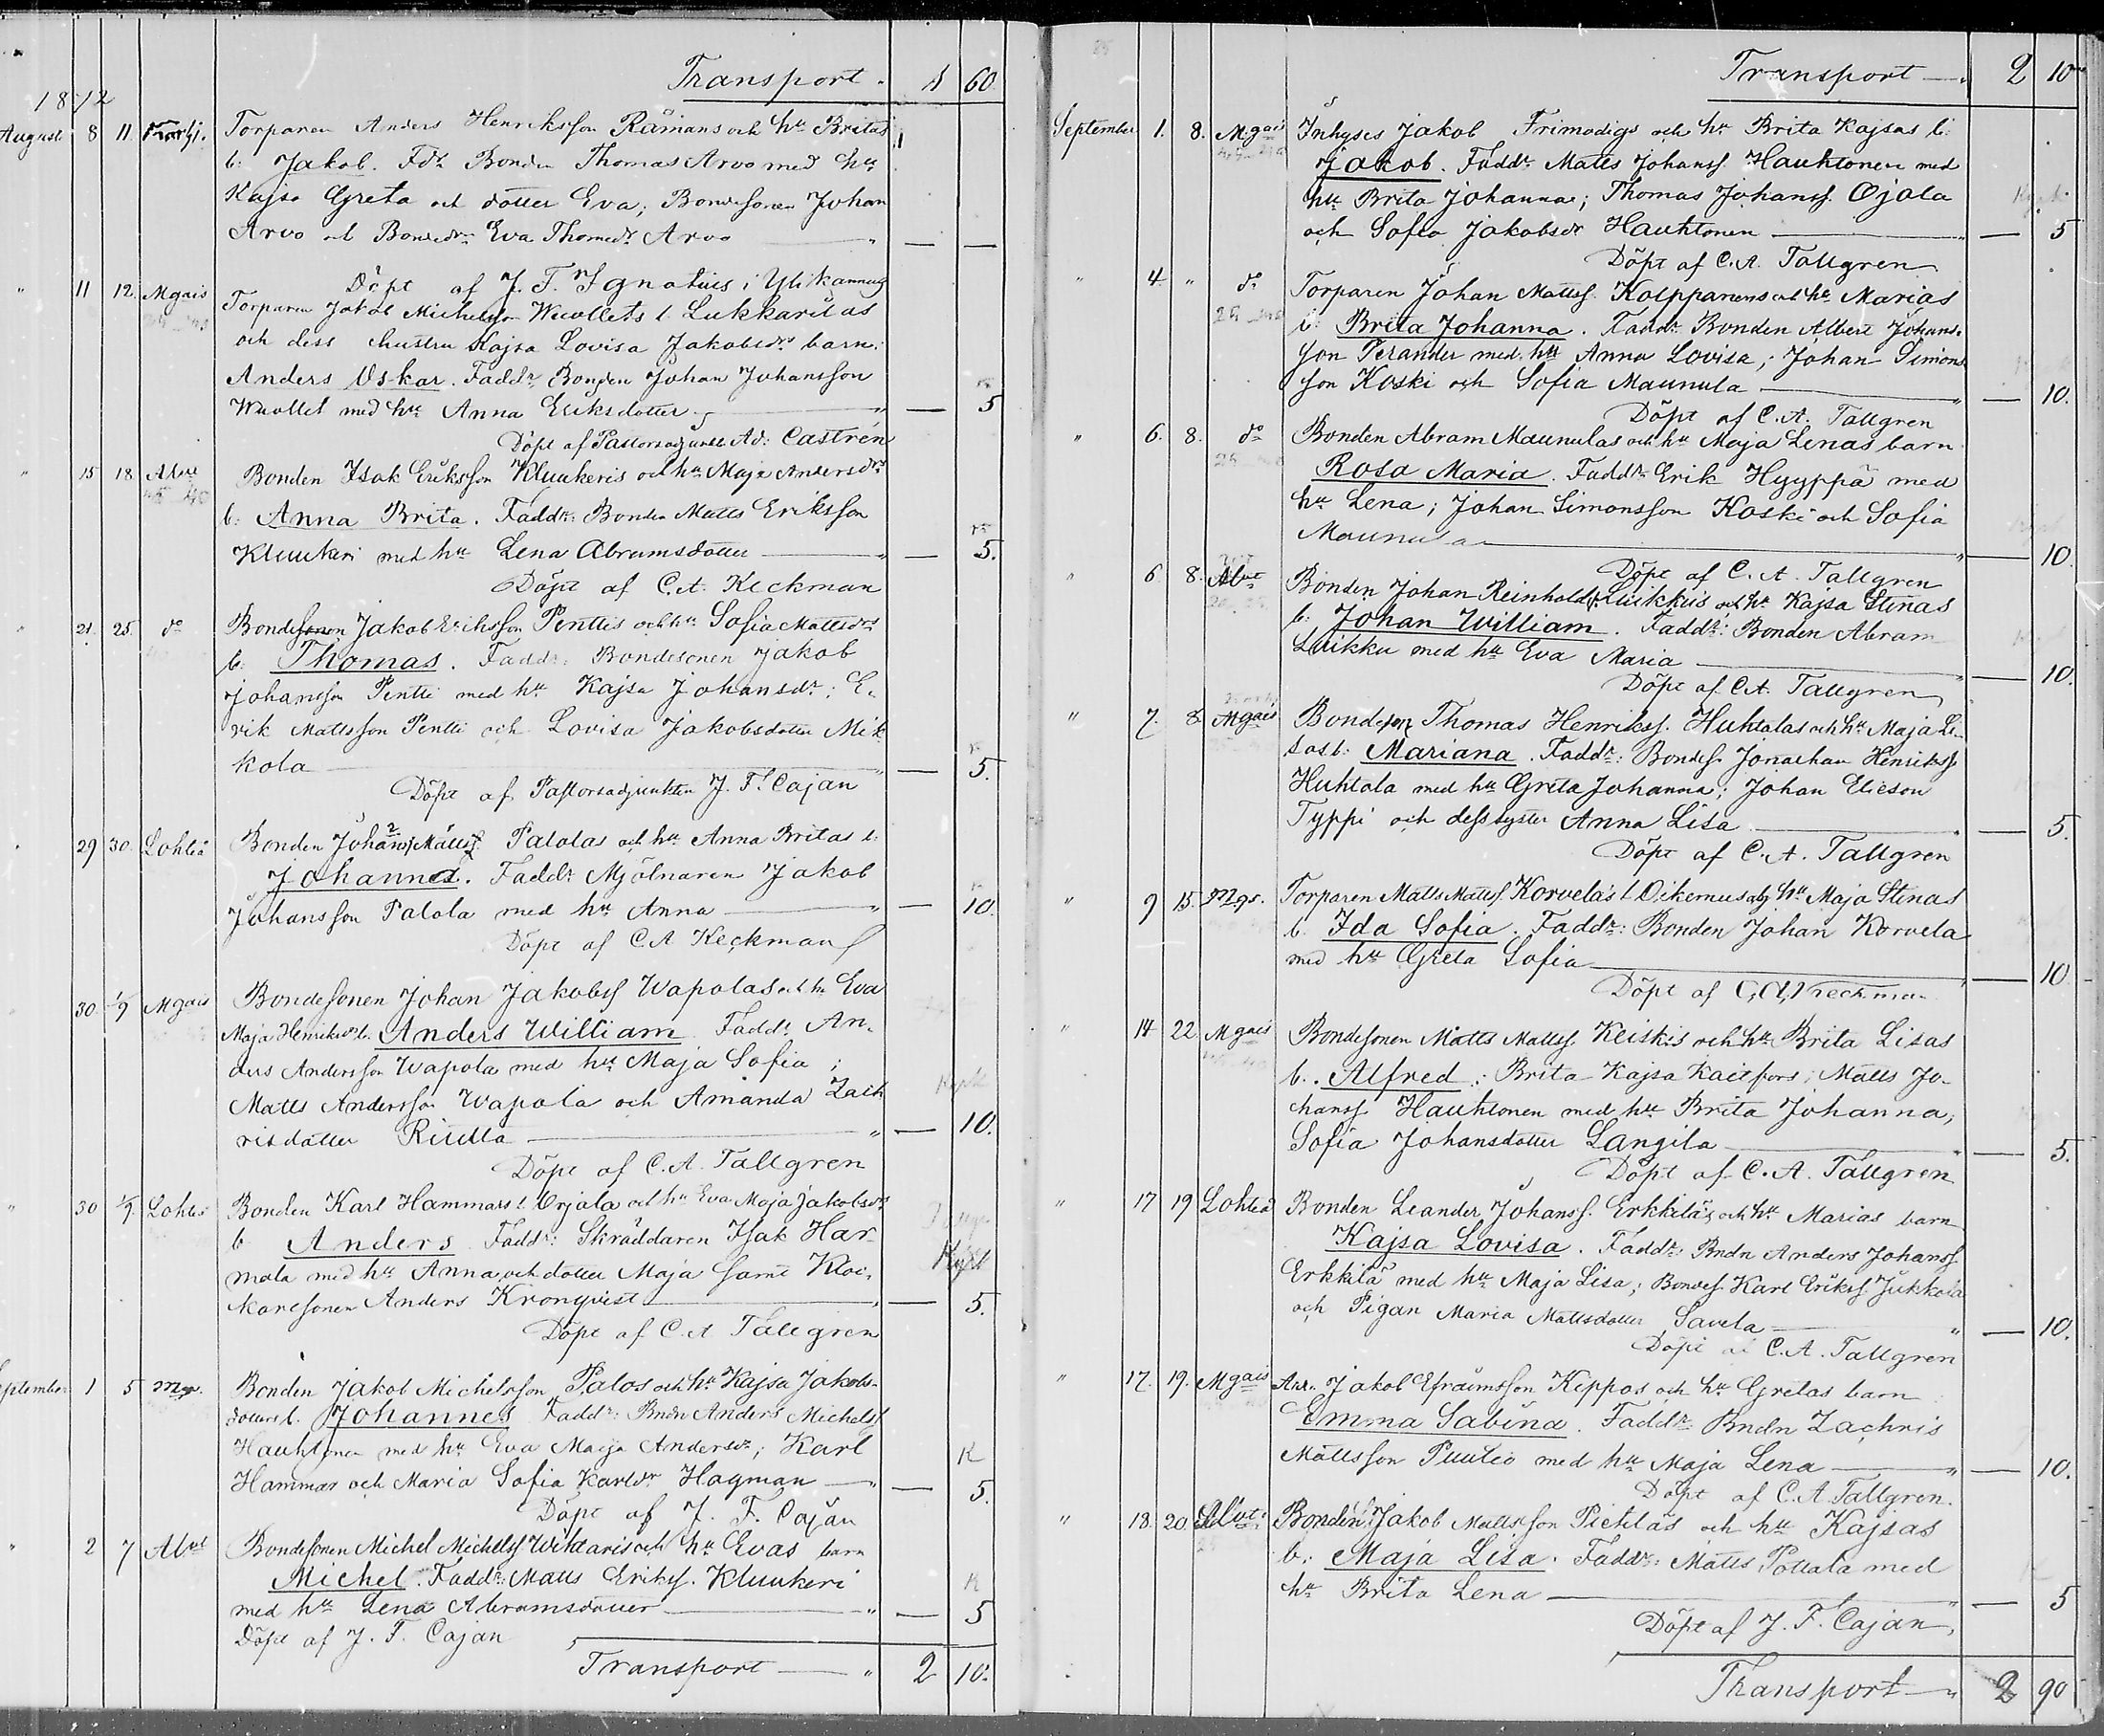 Transport. 1 60
1872
August 8 11. Torparen Anders Henriksson Råmans och hu Britas
b: Jakob. Fdr Bonden Thomas Arvo med hu
Kajsa Greta och dotter Eva; Bondesonen Johan
Arvo och Bondedr Eva Thomedr Arvo — —
Döpt af J. F. Ignatius i Ylikannus
" 11 12. Mgais Torparen Jakob Michelsson Wuollets l. Lukkarilas
och dess hustru Kajsa Lovisa Jakobsdrs barn:
Anders Oskar. Faddr Bonden Johan Johansson
Wuollet med hu Anna Eriksdotter — 5
Döpt af Pastorsadjunkt Ad: Castrén
" 15 18 Alvt Bonden Isak Eriksson Kluukeris och hu Maja Andersdrs
b: Anna Brita. Faddr: Bonden Matts Eriksson
Kluukeri med hu Lena Abramsdotter — 5.
Döpt af C. A. Keckman
21. 25. do Bondesonen Jakob Eriksson Penttis och hu Sofia Mattsdrs
b: Thomas. Faddr: Bondesonen Jakob
Johansson Pentti med hu Kajsa Johansdr; E-
rik Mattsson Pentti och Lovisa Jakobsdotter Mik
kola — 5.
Döpt af Pastorsadjunkten J. F. Cajan
29 30. Lohteå Bonden Johan Mattss Palolas och hu Anna Britas b:
Johannes. Faddr Mjölnaren Jakob
Johansson Palola med hu Anna — 10.
Döpt af C. A Keckman
30 1/9 Mgais Bondesonen Johan Jakobss Wapolas och hu Eva
Maja Henriksdrs b. Anders William Faddr An-
ders Andersson Wapola med hu Maja Sofia;
Matts Andersson Wapola och Amanda Zach
risdotter Riutta — 10.
Döpt af C. A. Tallgren
" 30 1/9. Lohteå Bonden Karl Hammars l. Orjala och hu Eva Maja Jakobsdrs
b Anders Faddr: Skräddaren Isak Har-
mala med hu Anna och dotter Maja samt Kloc-
karesonen Anders Kronqvist — 5.
Döpt af C. A Tallgren
September 1 5 Bonden Jakob Michelsson Palos och hu Kajsa Jakobs-
dotters b. Johannes Faddr: Bndn Anders Michelss
Hauhtonen med hu Eva Maja Andersdr; Karl
Hammar och Maria Sofia Karlsdr Hagman — 5.
Döpt af J. F. Cajan
" 2 7 Alvt Bondesonen Michel Michelss Wiktaris och hu Evas barn
Michel. Faddr: Matts Erikss. Kluukeri
med hu Lena Abramsdotter — 5
Döpt af J. F. Cajan
Transport — 2 10.
Transport — 2 10
September 1. 8. Mgais Inhyses Jakob Frimodigs och hu Brita Kajsas b:
Jakob. Faddr Matts Johanss. Hauhtonen med
hu Brita Johanna; Thomas Johanss. Ojala
och Sofia Jakobsdr Hauhtonen — 5
Döpt af C. A. Tallgren
" 4 " do Torparen Johan Mattss. Kolppanens och hu Marias
b: Brita Johanna. Faddr Bonden Albert Johans-
son Perander med hu Anna Lovisa; Johan Simons
son Koski och Sofia Maunula — 10.
Döpt af C. A. Tallgren
" 6. 8. do Bonden Abram Maunulas och hu Maja Lenas barn
Rosa Maria. Faddr Erik Hyyppä med
hu Lena; Johan Simonsson Koski och Sofia
Maunula — 10
Döpt af C. A. Tallgren
" 6 8. Alvt Bonden Johan Reinholds Luikkus och hu Kajsa Stinas
b: Johan William. Faddr: Bonden Abram
Luikku med hu Eva Maria — 10.
Döpt af C. A. Tallgren
" 7. 8. Mgais Bondeson Thomas Henrikss. Huhtalas och hu Maja Li-
sas b: Mariana. Faddr: Bondes. Jonathan Henrikss
Huhtala med hu Greta Johanna; Johan Elieson
Typpi och dess syster Anna Lisa — 5.
Döpt af C. A. Tallgren
" 9 15. Mgs. Torparen Matts Mattss. Korvelas l Oikemus och hu Maja Stinas
b. Ida Sofia. Faddr: Bonden Johan Korvela
med hu Greta Sofia — 10
Döpt af C. A. Keckman
" 14 22 Mgais Bondesonen Matts Mattss. Keiskis och hu Brita Lisas
b. Alfred: Brita Kajsa Kaitfors; Matts Jo-
hanss. Hauhtonen med hu Brita Johanna;
Sofia Johansdotter Langila — 5.
Döpt af C. A. Tallgren
" 17 19 Lohteå Bonden Leander Johanss. Erkkiläs och hu Marias barn
Kajsa Lovisa. Faddr: Bndn Anders Johanss
Erkkilä med hu Maja Lisa; Bondes. Karl Erikss. Jukkola
och Pigan Maria Mattsdotter Savela — 10.
Döpt af C. A. Tallgren
" 17. 19. Mgais Jakob Efraimsson Keppos och hu Gretas barn
Emma Sabina. Faddr Bndn Zachris
Mattsson Puutio med hu Maja Lena — 10.
Döpt af C. A. Tallgren.
" 18. 20. Alvt: Bonden Jakob Mattsson Pietiläs och hu Kajsas
b: Maja Lisa. Faddr: Matts Pottala med
hu Brita Lena — 5
Döpt af J. F. Cajan
Transport — 2 90